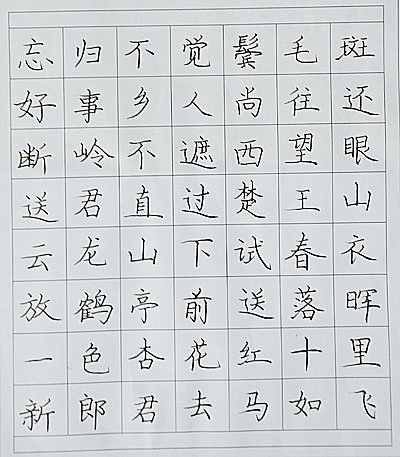 忘归不觉鬓毛斑
好事乡人尚往还
断岭不遮西望眼
送君直过楚王山
云龙山下试春衣
放鹤亭前送落晖
一色杏花红十里
新郎君去马如飞